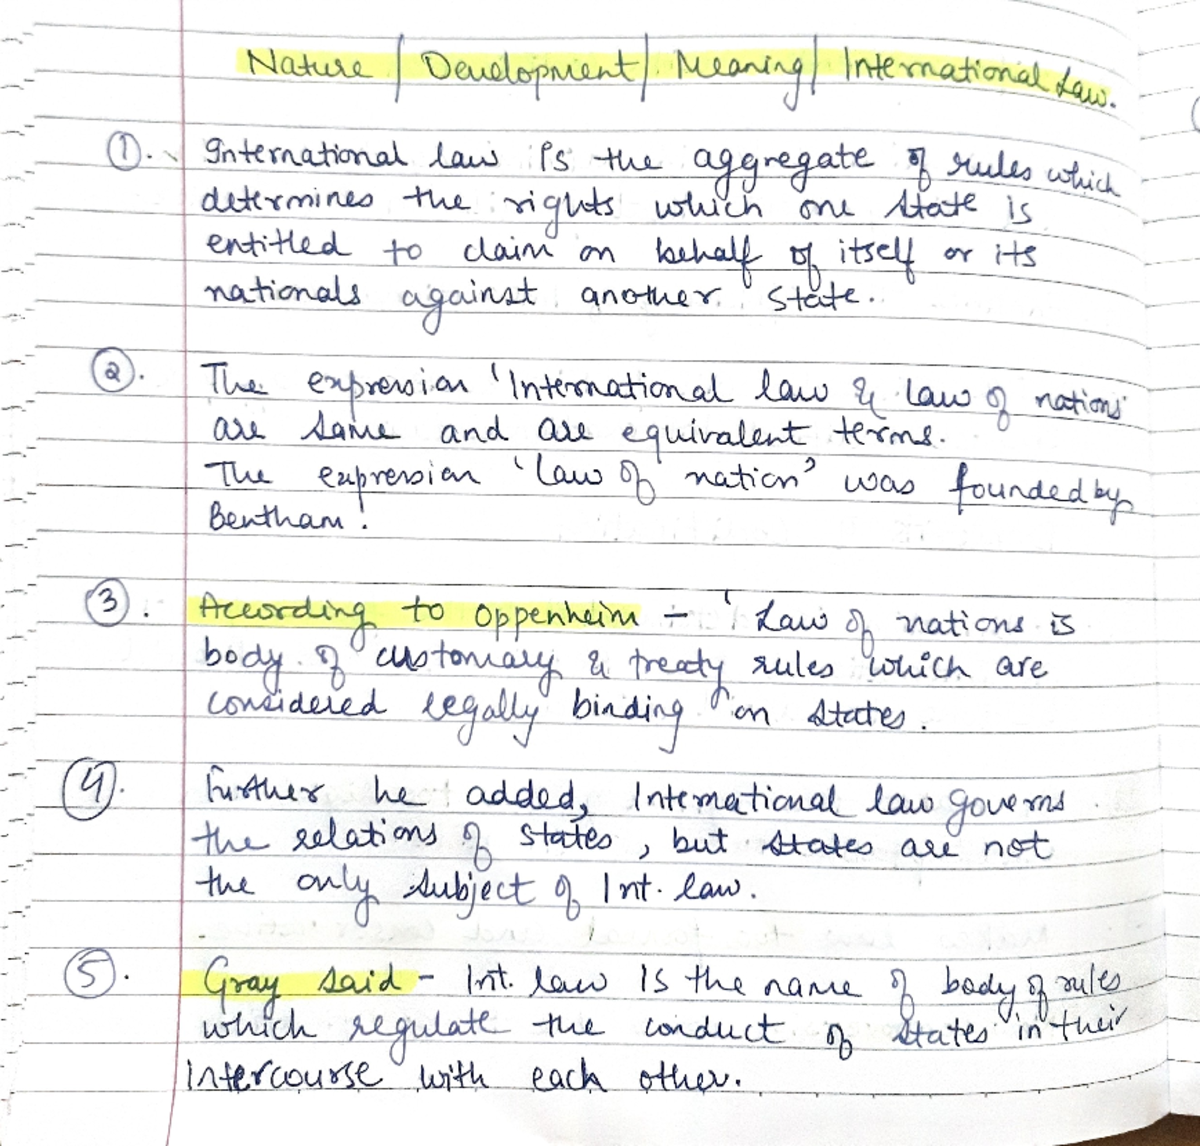 Nature / Development / Meaning / International Law.
①. International law is the aggregate of rules which
determines the rights which one state is
entitled to claim on behalf of itself or its
nationals against another state.
②. The expression 'International law & law of nations'
are same and are equivalent terms.
The expression 'law of nation' was founded by
Bentham!
③. According to Oppenheim ÷ 'Law of nations is
body of customary & treaty rules which are
considered legally binding on states.
④. Further he added, International law governs
the relations of states, but states are not
the only subject of Int. law.
⑤. Gray said - Int. law is the name of body of rules
which regulate the conduct of states in their
intercourse with each other.